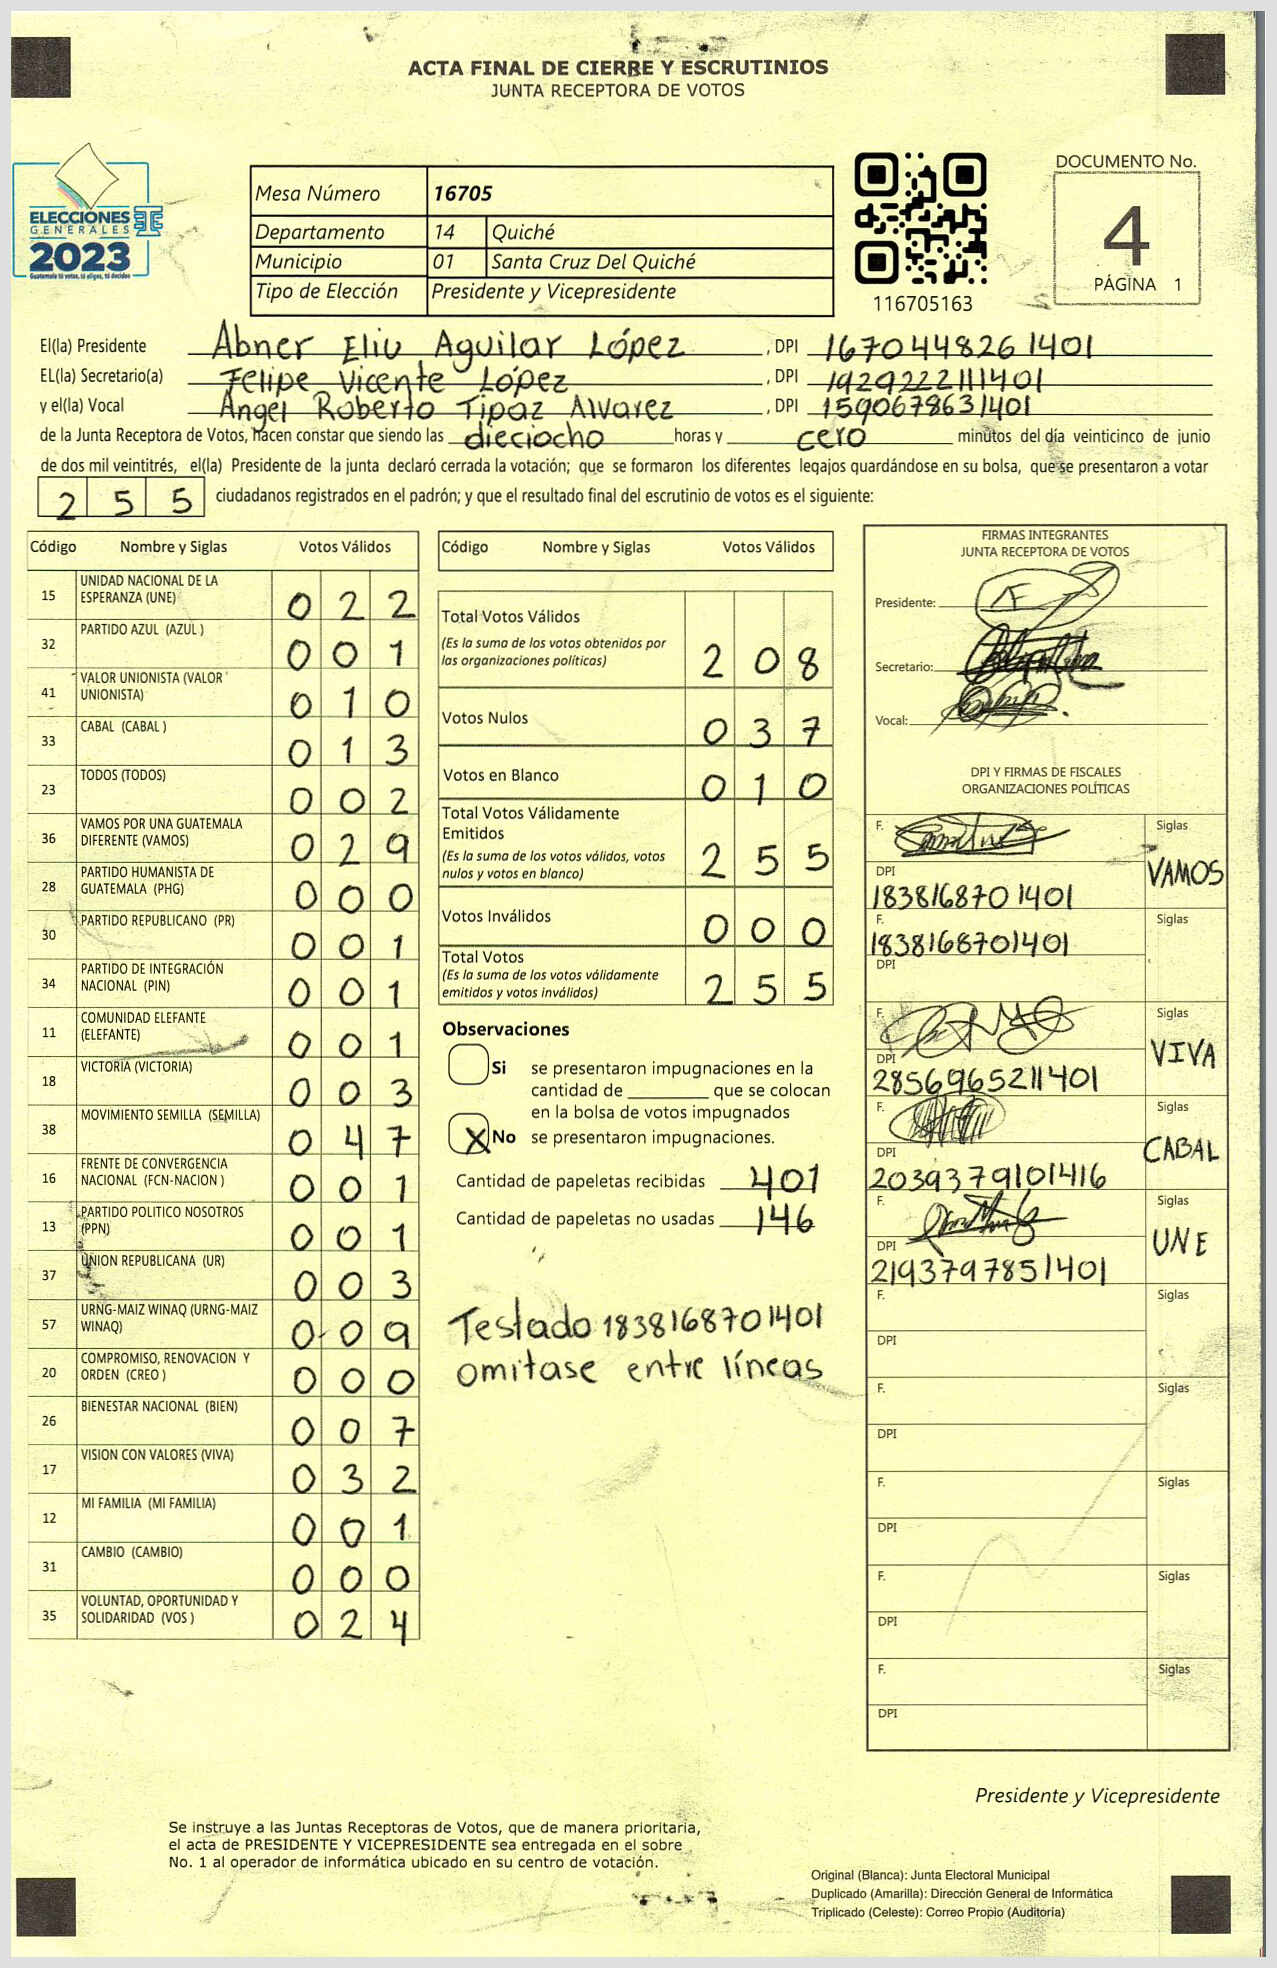 ACTA FINAL DE CIERRE Y ESCRUTINIOS
JUNTA RECEPTORA DE VOTOS
ELECCIONES
GENERALES
2023
Guatemala tú votas, tú eliges, tú decides
Mesa Número 16705
Departamento 14 Quiché
Municipio 01 Santa Cruz Del Quiché
Tipo de Elección Presidente y Vicepresidente
116705163
DOCUMENTO No.
4
PÁGINA 1
El(la) Presidente Abner Eliu Aguilar López, DPI 1670448261401
EL(la) Secretario(a) Felipe Vicente López, DPI 1929222111401
y el(la) Vocal Angel Roberto Tipaz Alvarez, DPI 1590678631401
de la Junta Receptora de Votos, hacen constar que siendo las dieciocho horas y cero minutos del día veinticinco de junio
de dos mil veintitrés, el(la) Presidente de la junta declaró cerrada la votación; que se formaron los diferentes legajos quardándose en su bolsa, que se presentaron a votar
255 ciudadanos registrados en el padrón; y que el resultado final del escrutinio de votos es el siguiente:
Código Nombre y Siglas Votos Válidos
15 UNIDAD NACIONAL DE LA ESPERANZA (UNE) 022
32 PARTIDO AZUL (AZUL ) 001
41 VALOR UNIONISTA (VALOR UNIONISTA) 010
33 CABAL (CABAL ) 013
23 TODOS (TODOS) 002
36 VAMOS POR UNA GUATEMALA DIFERENTE (VAMOS) 029
28 PARTIDO HUMANISTA DE GUATEMALA (PHG) 000
30 PARTIDO REPUBLICANO (PR) 001
34 PARTIDO DE INTEGRACIÓN NACIONAL (PIN) 001
11 COMUNIDAD ELEFANTE (ELEFANTE) 001
18 VICTORIA (VICTORIA) 003
38 MOVIMIENTO SEMILLA (SEMILLA) 047
16 FRENTE DE CONVERGENCIA NACIONAL (FCN-NACION ) 001
13 PARTIDO POLITICO NOSOTROS (PPN) 001
37 UNION REPUBLICANA (UR) 003
57 URNG-MAIZ WINAQ (URNG-MAIZ WINAQ) 009
20 COMPROMISO, RENOVACION Y ORDEN (CREO ) 000
26 BIENESTAR NACIONAL (BIEN) 007
17 VISION CON VALORES (VIVA) 032
12 MI FAMILIA (MI FAMILIA) 001
31 CAMBIO (CAMBIO) 000
35 VOLUNTAD, OPORTUNIDAD Y SOLIDARIDAD (VOS ) 024
Código Nombre y Siglas Votos Válidos
Total Votos Válidos 208
(Es la suma de los votos obtenidos por
las organizaciones políticas)
Votos Nulos 037
Votos en Blanco 010
Total Votos Válidamente
Emitidos 255
(Es la suma de los votos válidos, votos
nulos y votos en blanco)
Votos Inválidos 000
Total Votos 255
(Es la suma de los votos válidamente
emitidos y votos inválidos)
Observaciones
Si se presentaron impugnaciones en la
cantidad de ________ que se colocan
en la bolsa de votos impugnados
X No se presentaron impugnaciones.
Cantidad de papeletas recibidas 401
Cantidad de papeletas no usadas 146
Testado 1838168701401
omitase entre líneas
FIRMAS INTEGRANTES
JUNTA RECEPTORA DE VOTOS
Presidente:
Secretario:
Vocal:
DPI Y FIRMAS DE FISCALES
ORGANIZACIONES POLÍTICAS
F. Siglas
VAMOS
DPI
1838168701401
F. Siglas
1838168701401
DPI
F. Siglas
VIVA
DPI
2856965211401
F. Siglas
CABAL
DPI
2039379101416
F. Siglas
UNE
DPI
2193797851401
F. Siglas
DPI
F. Siglas
DPI
F. Siglas
DPI
F. Siglas
DPI
F. Siglas
DPI
Presidente y Vicepresidente
Se instruye a las Juntas Receptoras de Votos, que de manera prioritaria,
el acta de PRESIDENTE Y VICEPRESIDENTE sea entregada en el sobre
No. 1 al operador de informática ubicado en su centro de votación.
Original (Blanca): Junta Electoral Municipal
Duplicado (Amarilla): Dirección General de Informática
Triplicado (Celeste): Correo Propio (Auditoría)